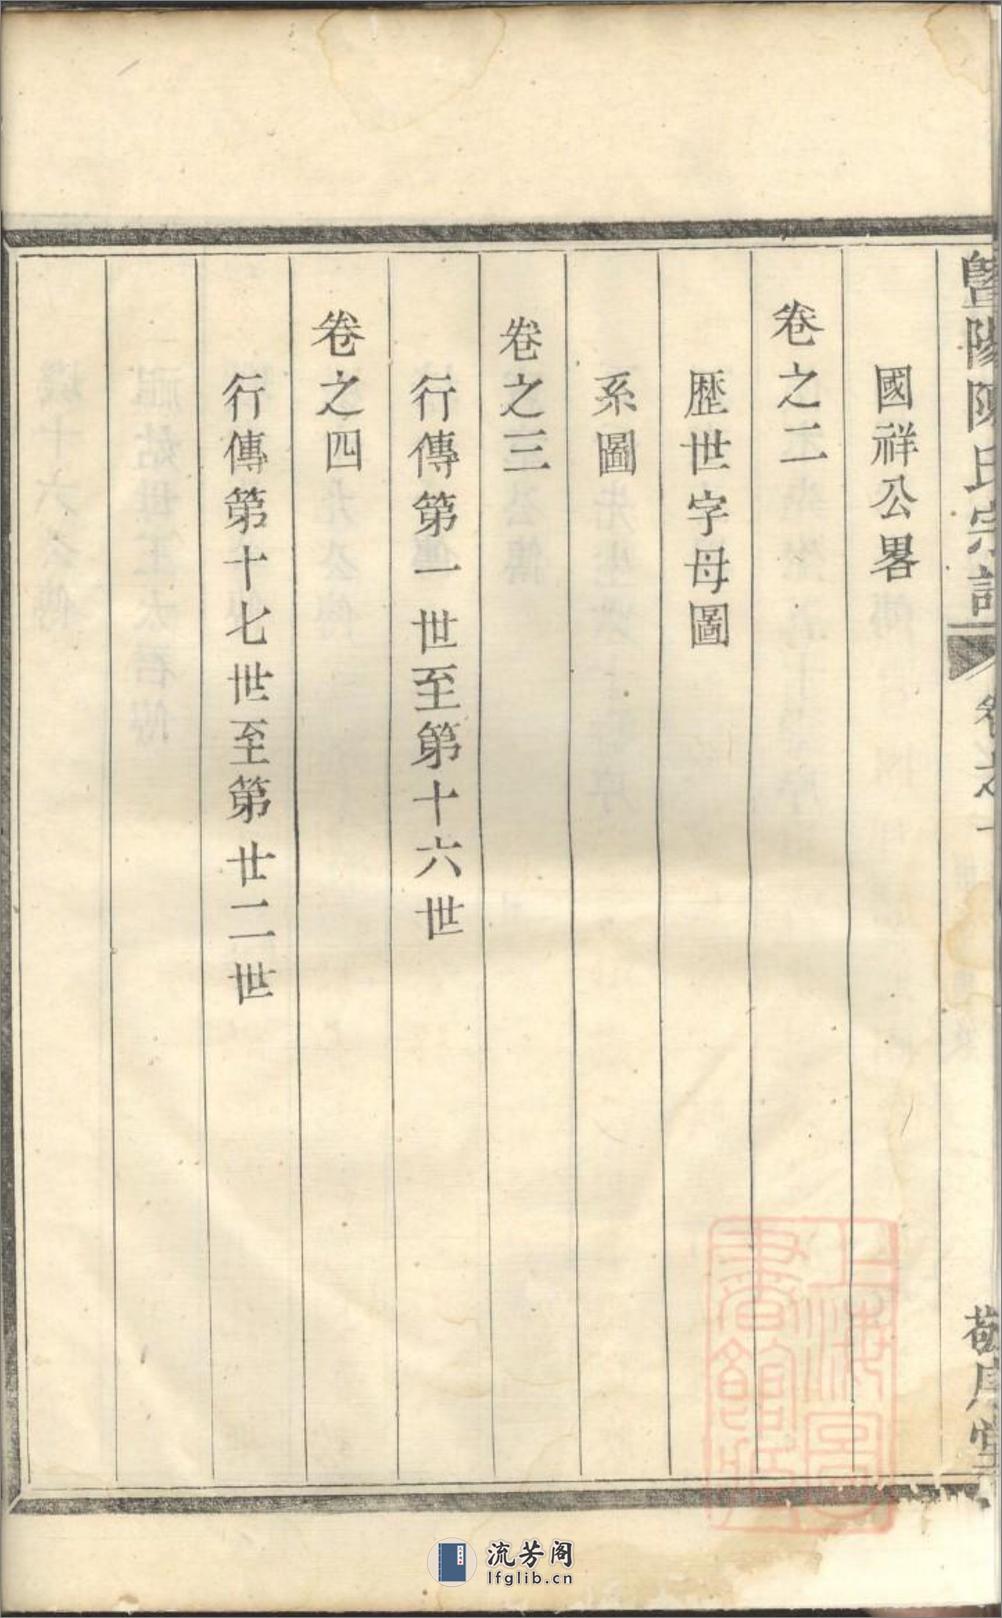 暨陽陳氏宗譜
卷之一
國祥公畧
卷之二
歷世字母圖
系圖
卷之三
行傳第一世至第十六世
卷之四
行傳第十七世至第廿二世
上海圖書館藏
流芳阁
lfglib.cn